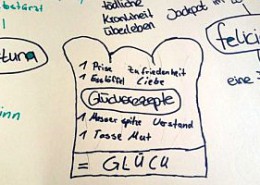 tödliche
Krankheit
überleben
Jackpot im
felici
eine
1 Prise Zufriedenheit
1 Esslöffel Liebe
Glücksrezepte
1 Messerspitze Verstand
1 Tasse Mut
= GLÜCK